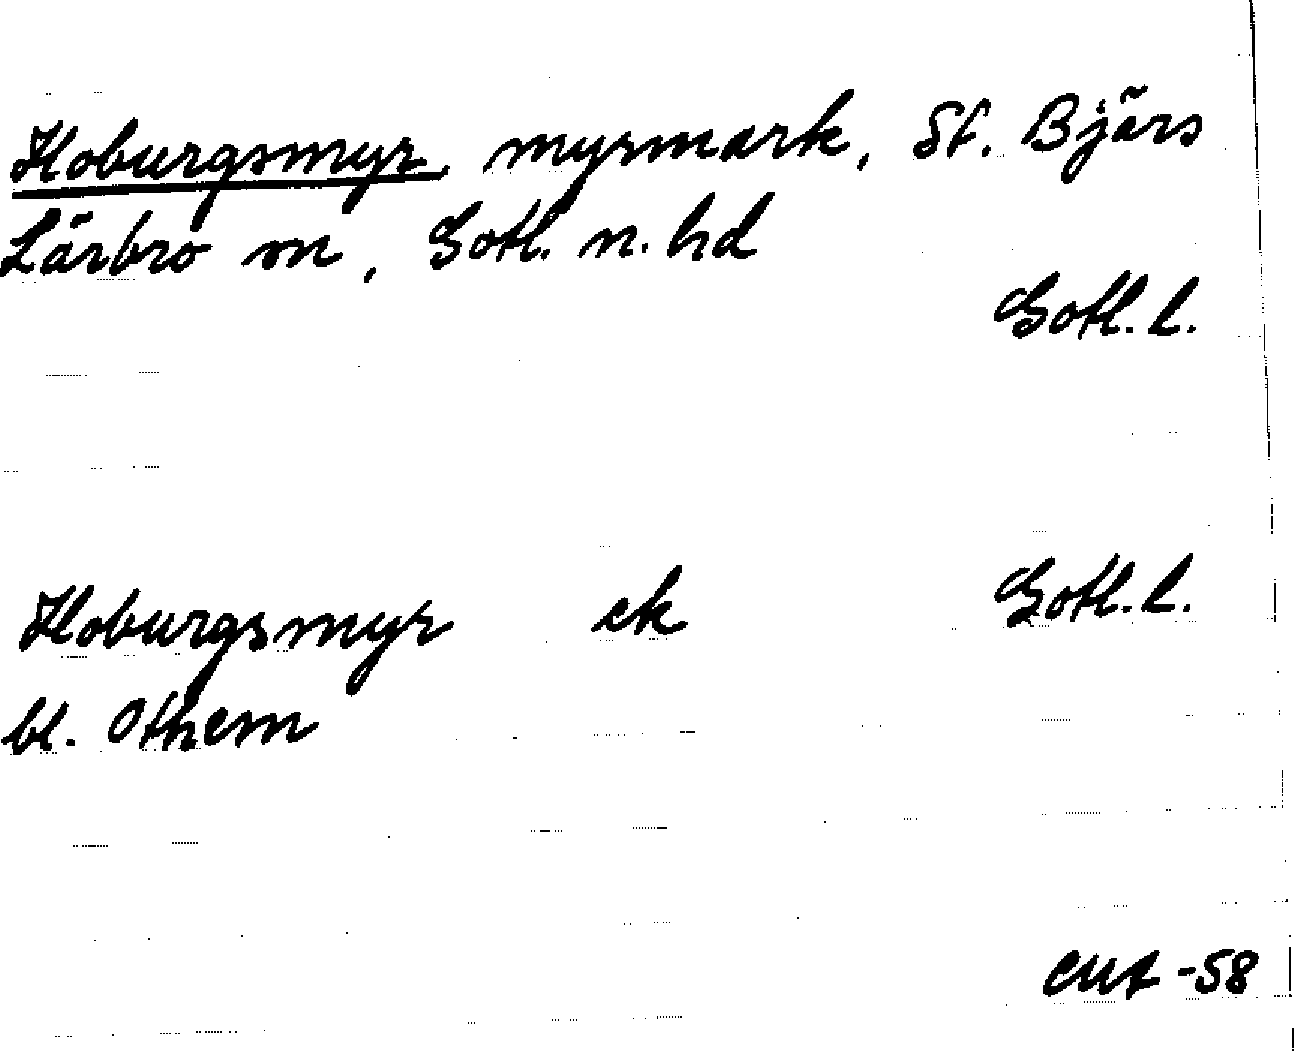 Hoburgsmyr, myrmark, St. Bjärs
Lärbro sn, Gotl. n. hd
Gotl. l.
Hoburgsmyr ek Gotl. l.
bl. Othem
-58